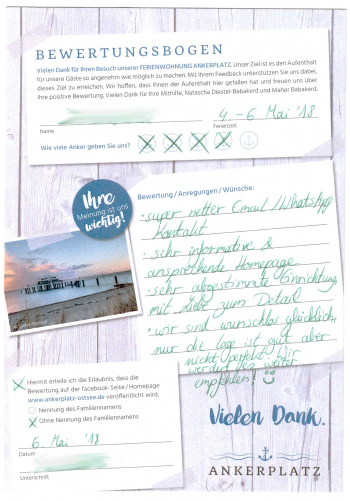 BEWERTUNGSBOGEN
Vielen Dank für Ihren Besuch unserer FERIENWOHNUNG ANKERPLATZ. Unser Ziel ist es den Aufenthalt
für unsere Gäste so angenehm wie möglich zu machen. Mit Ihrem Feedback unterstützen Sie uns dabei,
dieses Ziel zu erreichen. Wir hoffen, dass Ihnen der Aufenthalt hier gefallen hat und freuen uns über
Ihre positive Bewertung. Vielen Dank für Ihre Mithilfe, Natascha Diestel-Babakerd und Maher Babakerd.
4. - 6. Mai '18
Name
Ferienzeit
Wie viele Anker geben Sie uns?
Ihre
Meinung ist uns
wichtig!
Bewertung / Anregungen / Wünsche:
• super netter Email / WhatsApp
Kontakt
• sehr informative &
ansprechende Homepage
• sehr abgestimmte Einrichtung
mit Liebe zum Detail
• wir sind wunschlos glücklich,
nur die Lage ist gut aber
nicht perfekt. Wir
werden Sie weiter
empfehlen!
Hiermit erteile ich die Erlaubnis, dass die
Bewertung auf der facebook-Seite / Homepage
www.ankerplatz-ostsee.de veröffentlicht wird.
Nennung des Familiennamens
Ohne Nennung des Familiennamens
6. Mai '18
Datum
Unterschrift
Vielen Dank.
ANKERPLATZ